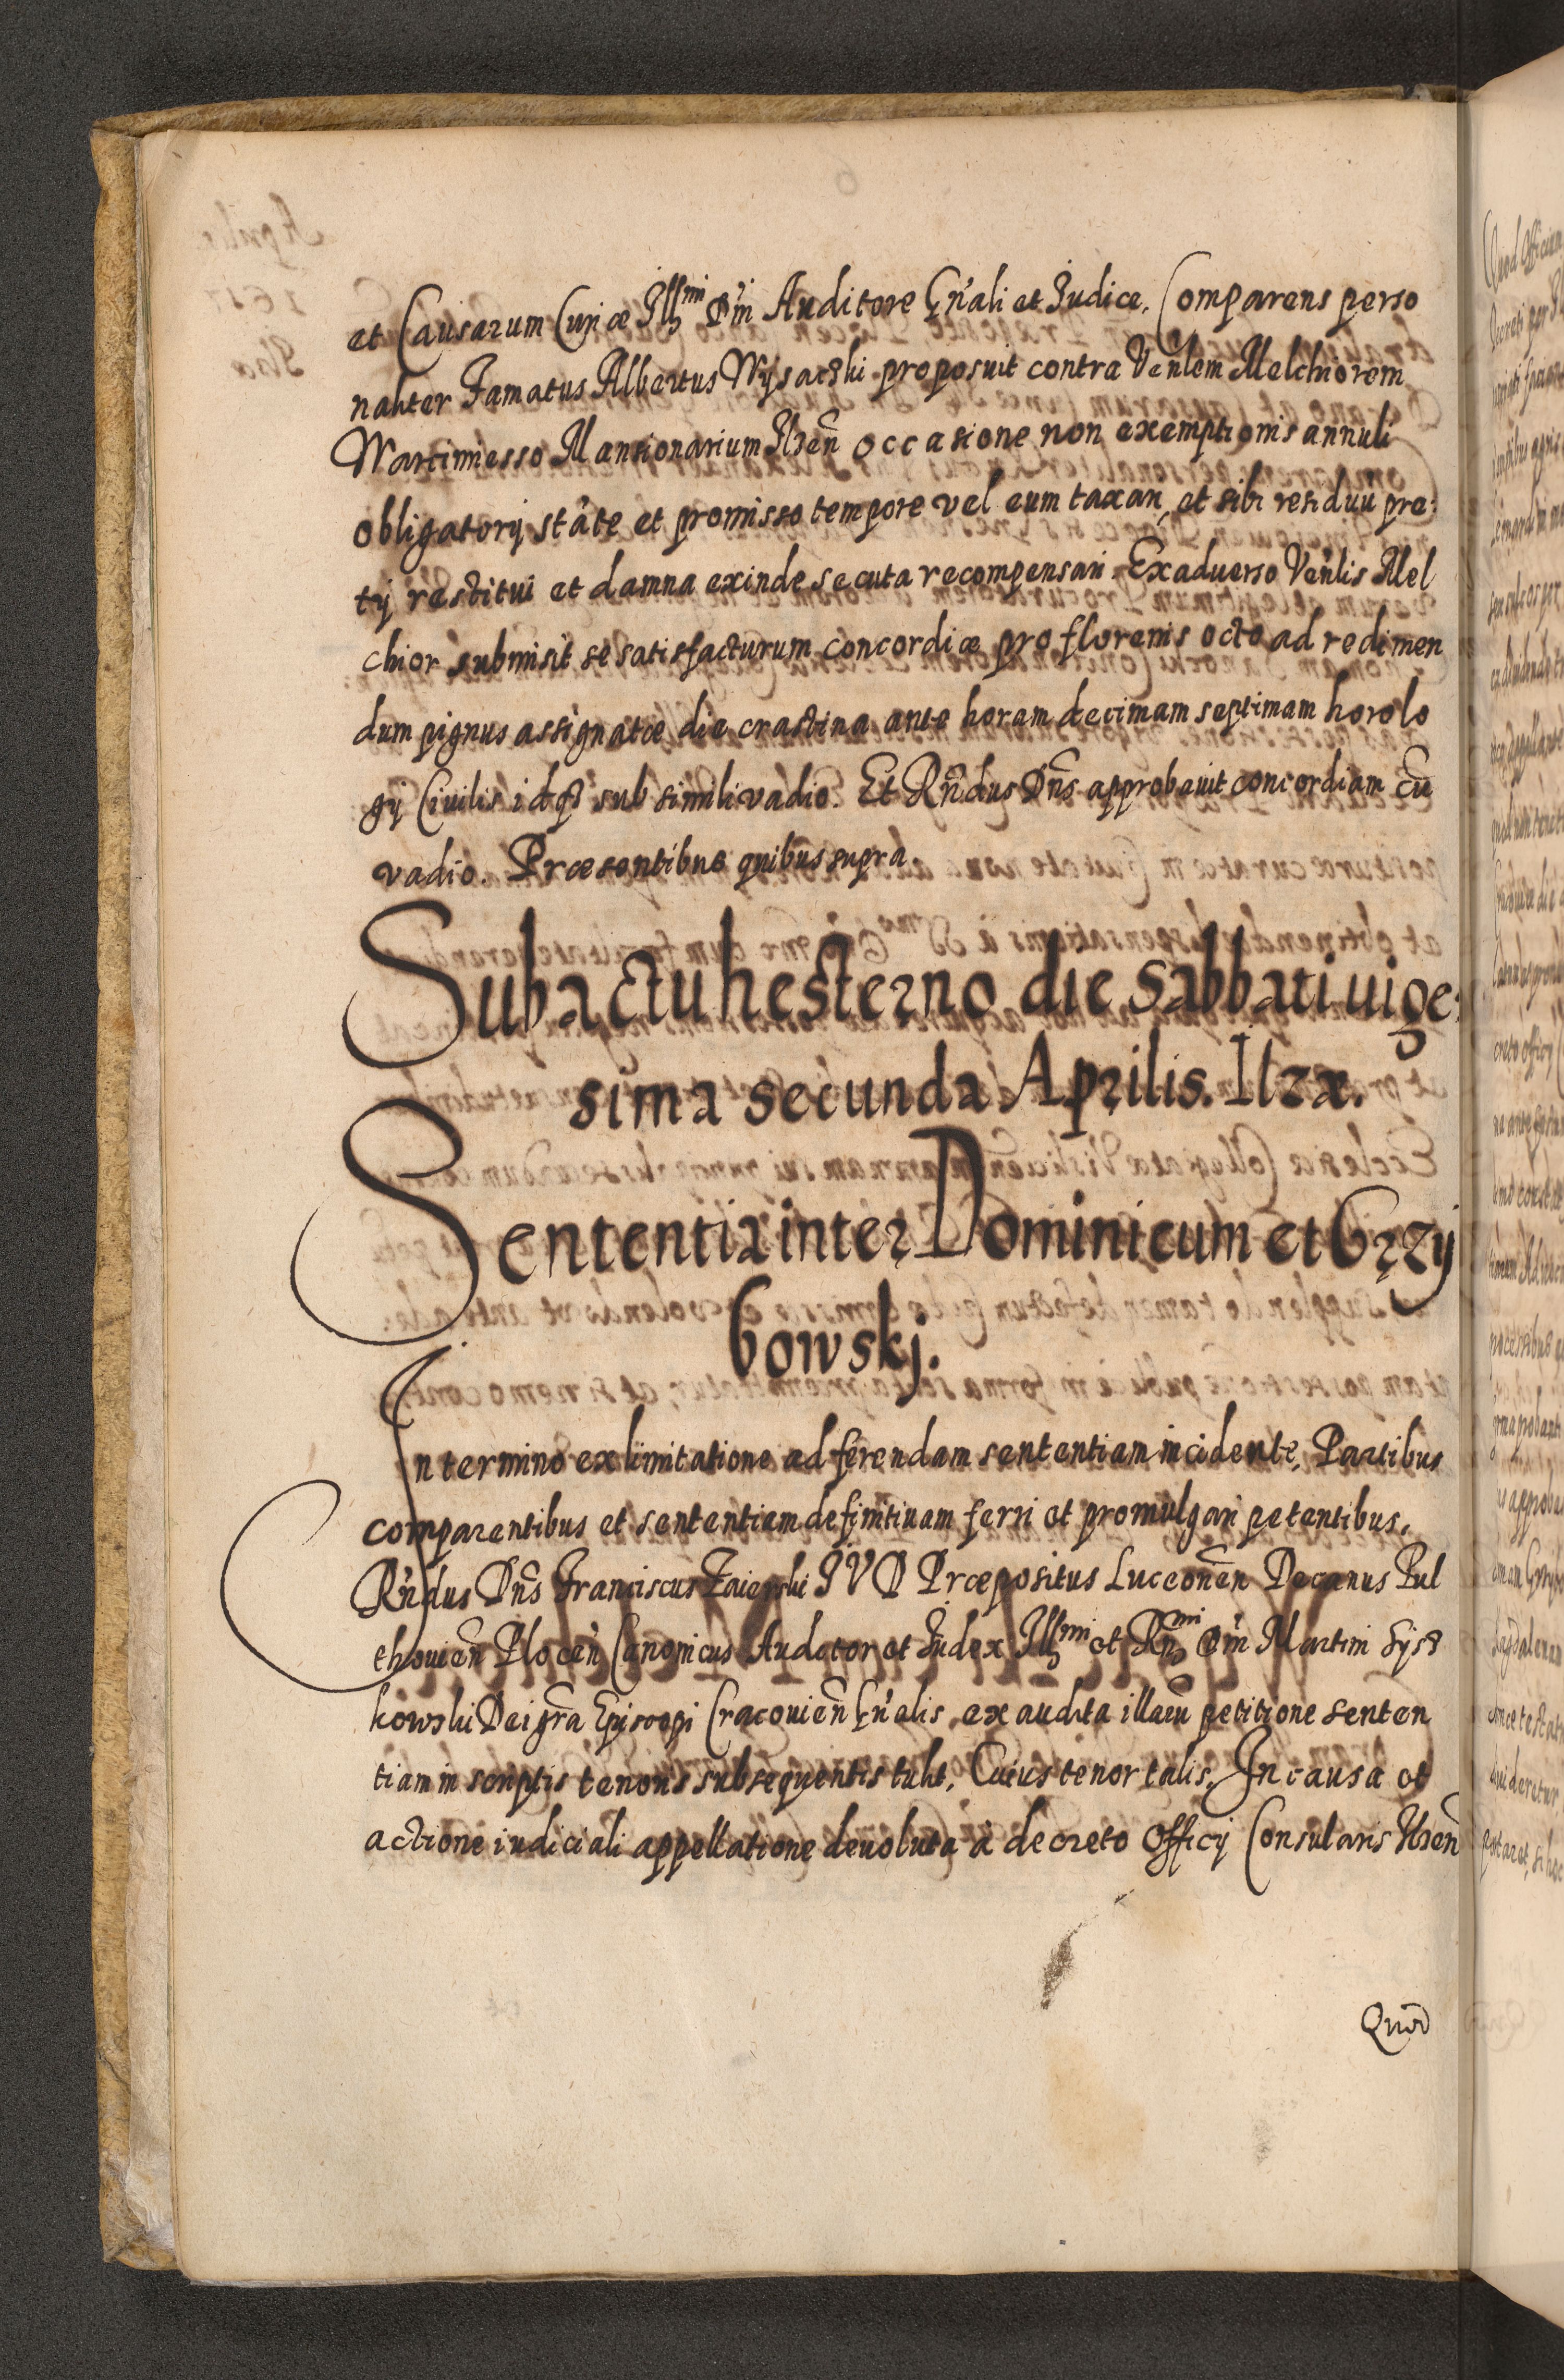 et Causarum Curiæ Illmi Dni Auditore Gnali et Iudice. Comparens perso
naliter Famatus Albertus Wysaczki proposuit contra Venlem Melchiorem
Martiniesso Mansionarium Ilzen̄ occasione non exemptionis annuli
obligatorij state et promisso tempore vel eum taxari, et sibi residuū pre:
tij restitui et damna exinde secuta recompensari. Ex aduerso Venlis Mel
chior submisit se satisfacturum concordiæ pro florenis octo ad redimen
dum pignus assignatæ die crastina ante horam decimam septimam horolo
gij Ciuilis idq̃ sub simili vadio. Et Rndus Dns approbauit concordiam cū
vadio. Præsentibus quibus supra.
Sub actu hesterno die Sabbati uige:
sima secunda Aprilis. Ilzæ.
Sententia inter Dominicum et Grzy
bowskj.
In termino ex limitatione ad ferendam sententiam incidente, Partibus
comparentibus et sententiam definitiuam ferri et promulgari petentibus.
Rndus Dns Franciscus Zaierski I V D Præpositus Luceonen̄ Decanus Pul
thouien̄ Plocen̄ Canonicus Auditor et Iudex Illmi et Rndmi Dni Martini Sysz
kowski Dei gr̄a Episcopi Cracouien̄ Gn̄alis, exaudita illarū petitione senten
tiam in scriptis tenoris subsequentis tulit. Cuius tenor talis. In causa et
actione iudiciali appellatione deuoluta à decreto Officij Consularis Ilzen̄
Quod